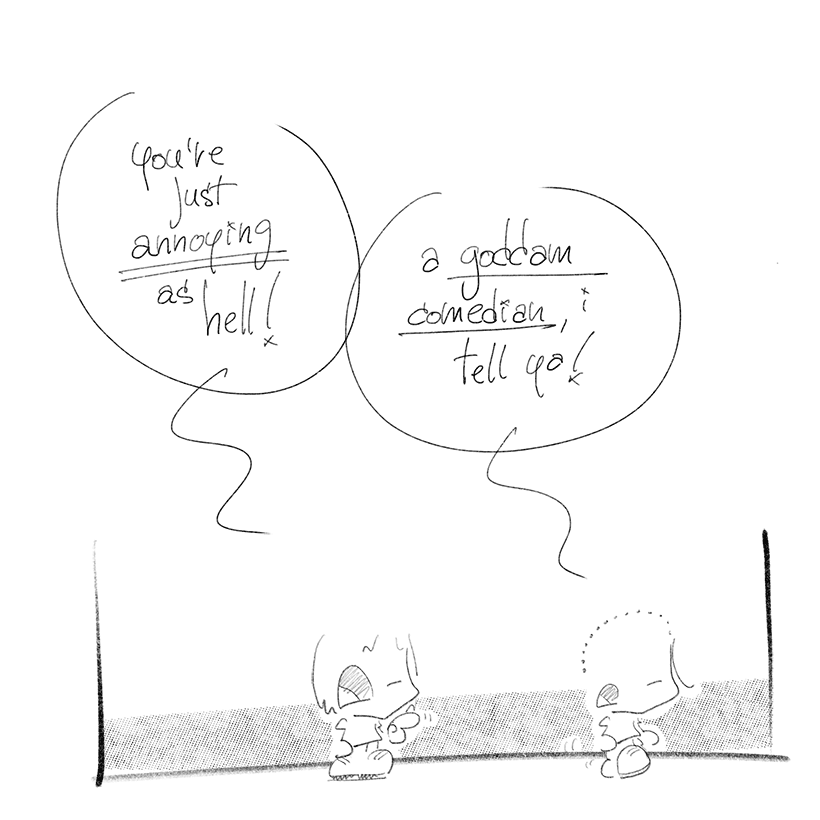 you're
just
annoying
as hell!
a goddam
comedian, i
tell ya!